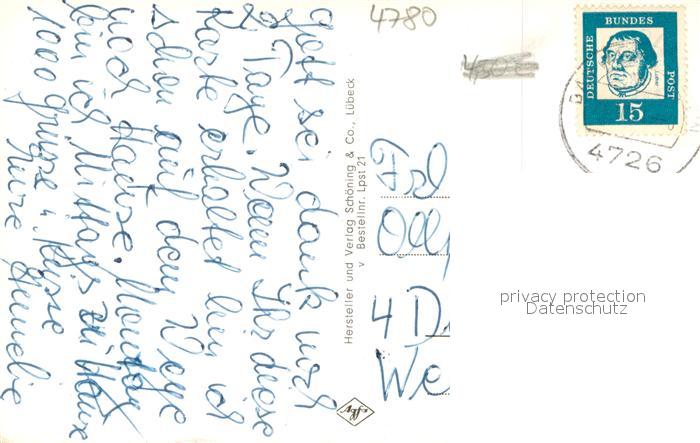 Gott sei dank noch
Tage. Wenn Ihr diese
Karte erhaltet bin ich
schon auf dem Wege
nach Hause. Montag
bin ich Mittags zu Hause
1000 Grüsse u. Küsse
Eure
4780
Hersteller und Verlag Schöning & Co., Lübeck
v Bestellnr. Lpst 21
Frl
Olly
4 D
We
DEUTSCHE
BUNDES
POST
15
4726
privacy protection
Datenschutz